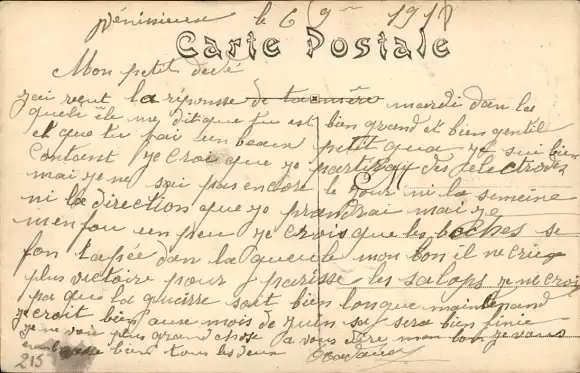 Vénissieux le 6 9m 1917
Carte Postale
Mon petit dédé
j'ai reçut la réponsse de ta mère mardi dan la
quele ile me dit que tu est bien grand et bien gentil
et que tu fai un beaux petit qua je sui bien
contant je croi que je partiray des électrodes
mai je ne sai pas enclore le jour ni la semeine
ni la direction que je prandrai mai je
men fou un peu je crois que les boches se
fon tapée dan la gueule mon bon il ne crie
plus victoire pour parisse les salops je ne croi
pa que la guerre soit bien longue maintenand
je croit bien aux mois de juin sa sera bien finie
je ne voi plus grand chose a vous dire mon bon je vous
embrasse bien tous les deux
215